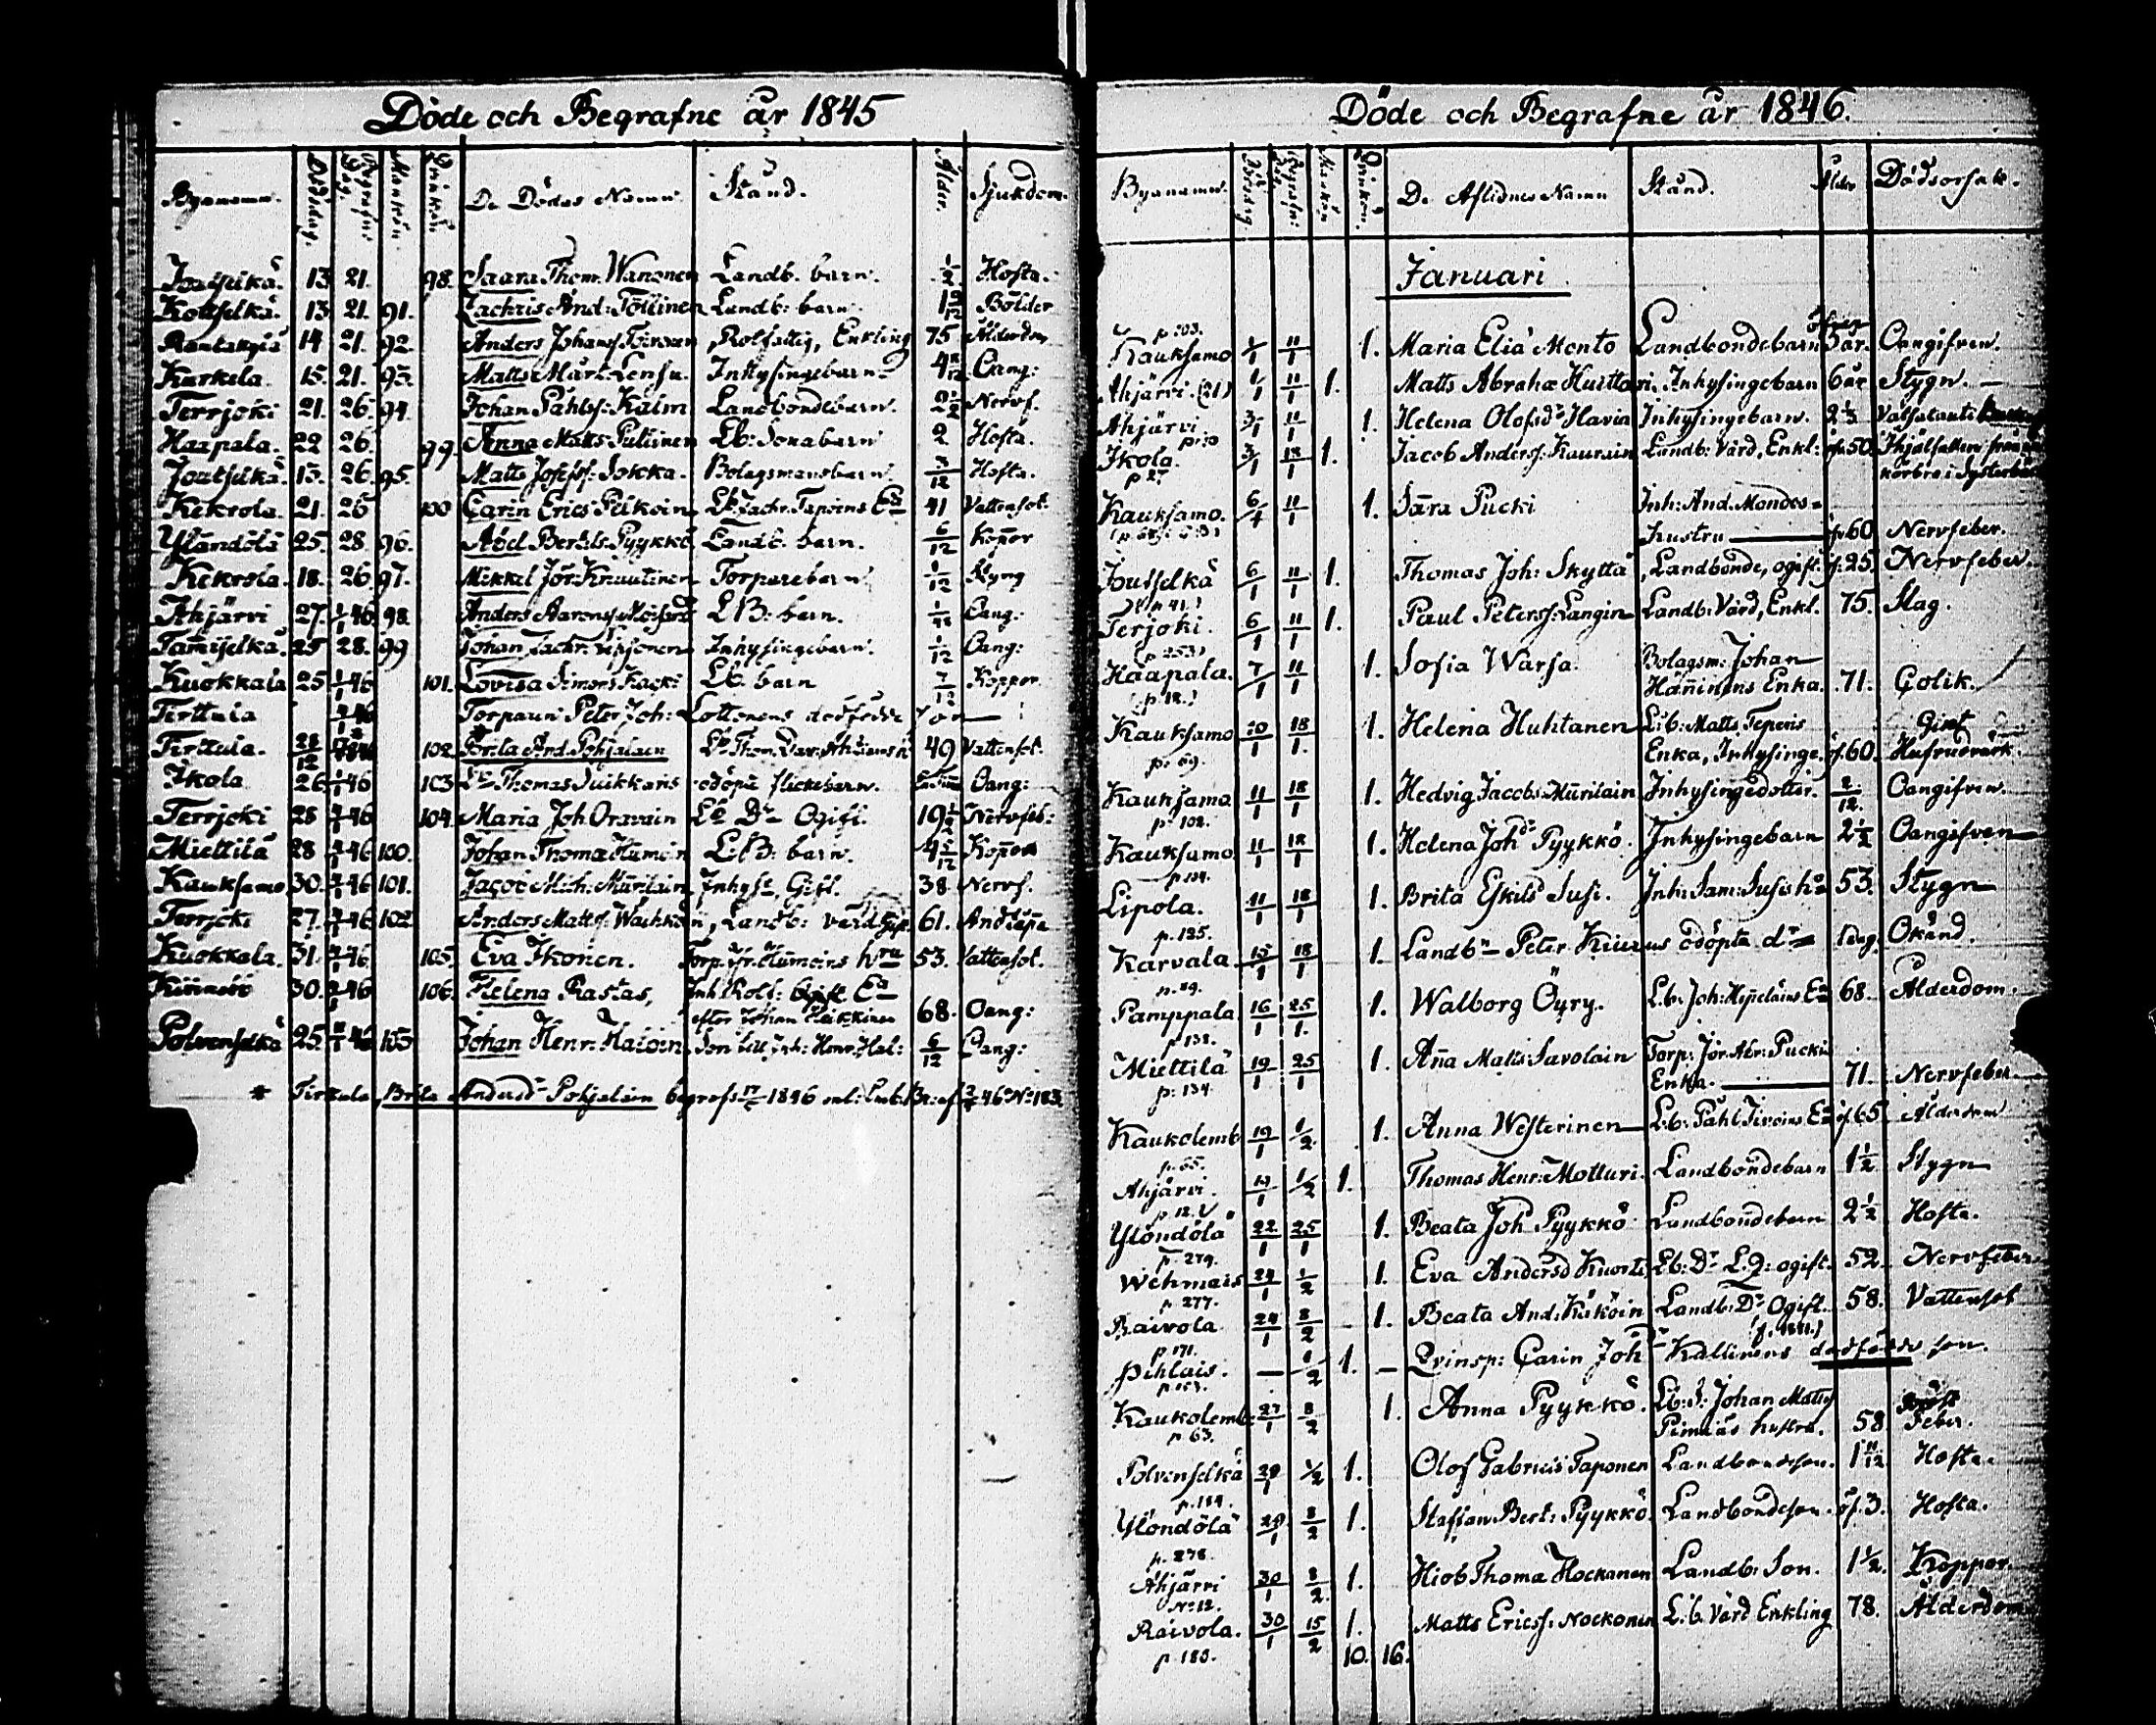 Döde och Begrafne år 1845
Bynamn. Dödsdag. Begrafn. dag. Mankön. Qvinkön. De Dödas Namn. Stånd. Ålder. Sjukdom.
Joutselkä. 13 21. 98. Saara Thom. Wanonen Landb. barn. 1/2 Hosta.
Kottselkä. 13 21. 91. Zachris And: Töllinen Landb: barn. Bölder
14 21. 92. Anders Johans: Enkling 75 Ålderdom
Kurkela. 15. 21. 93. Matts Mårt. Lensu. Inhysingebarn. Oang:
Terrjoki 21. 26. 94. Johan Påhlss: Kalm Landbondebarn. Nervf.
Haapala. 22 26. 99. Anna Matts: Putiinen Lb: Sonabarn 2 Hosta.
Joutselkä. 13. 26. 95. Matts Josefss: Sokka. Bolagsmansbarn. 3/12 Hosta.
Kekrola. 21. 26 100 Carin Erics Pelkoin Lb. Zachr. Taponens Ea 41 Vattensot.
Ylöndölä 25. 28. 96. Abel Bertils. Pyykkö Landb. barn. 6/12 Koppor
Kekrola. 18. 26 97. Mikkel Jör: Knuutinen Torparebarn 1/12 Styng
Ahjärvi 27. 1/1 46. 98. Anders Aarons: L B: barn. Oang:
Tamiselkä. 25 28. 99 Johan Zachr. Inhysingebarn. 1/12 Oang:
Kuokkala 25 1/1 46 101. Lovisa Simons Kacki Lb. barn 7/12 Koppor.
Tirttula Torparen Peter Joh: Lottonens dödfödde son
Tirttula. 28/12 102. Brita And. Pohjalain Lb Thom. Dav: 49 Vattensot.
Ikola 26 1/1 46 103 Lb Thomas Suikkanens odöpta flickebarn. Oang:
Terrjoki 28 46 104. Maria Joh. Oravain Lb Dr Ogift. 19 1/2 Nervfeb:
Miettilä 28 46 100. Johan Thomæ Hämäin L:B: barn. Koppor
Kauksamo. 30. 46 101. Jacob Mich. Mürilain Inhyse Gift. 38. Nervf.
Terrjoki 27. 46 102 Anders Matts: Wackkoin, Landb: värd Gift 61. Andtäpa
Kuokkala. 31. 46. 105. Eva Ikonen. Torp. hru 53. Vattensot.
30. 46 106. Helena Rastas, Inh. Rotf: Ogift Ea
efter Johan Heikkinen 68. Oang:
Polvenselkä 25. 46 103 Johan Henr: Haloin, Son till Inh: Henr. Hal: 6/12 Oang:
* Tirttula, Brita Andersd. Pohjalain begrafs 1846 enl: Br: af 46 No 183.
Döde och Begrafne år 1846.
Bynamn. Dödsdag. Begrafn: Mankön Qvinkön. De Aflidnes Namn Stånd. Ålder Dödsorsak.
Januari
p. 103.
Kauksamo 1/1 11/1 1. Maria Eliæ Monto Landbondebarn 3 år. Oangifven.
Ahjärvi. (21) 1/1 11/1 1. Matts Abrahæ Huittari. Inhysingebarn 6 år Stygn.
Ahjärvi 3/1 11/1 1. Helena Olofsdr Havia Inhysingebarn. 2 1/3.
Ikola. 3/1 18/1 1. Jacob Anderss: Kaurain Landb: Värd, Enkl: öf. 50. Ihjälfallen från
p 27
Kauksamo. 6/1 11/1 1. Sara Pucki Inh: And. Mondes
hustru öf 60 Nervfeber.
Joutselkä 6/1 11/1 1. Thomas Joh: Skyttä, Landbonde, ogift. öf. 25. Nervfeber.
(p 41.)
Terjoki. 6/1 11/1 1. Paul Peterss: Langin Landb: Värd, Enkl. 75. Slag.
(p 253)
Haapala. 7/1 11/1 1. Sofia Warsa. Bolagsm: Johan
(p 12.) Hänninens Enka. 71. Colik.
Kauksamo 10/1 18/1. 1. Helena Huhtanen L:b: Matts Teperis Gikt
p. 69. Enka, Inhysinge. öf. 60. Hufvudvärk.
Kauksamo. 11/1 18/1 1. Hedvig Jacobs: Mürilain Inhysingedotter. 2/12. Oangifven.
p. 102.
Kauksamo 11/1 18/1 1. Helena Johdr Pyykkö. Inhysingebarn 2 1/2 Oangifven
p. 104.
Lipola. 11/1 18/1 1. Brita Eskils Susi. Inh: Sam: Susis ha 53. Stygn
p. 185.
Karvala 15/1 18/1 1. Landbn Peter odöpta dr 1 dag. Okänd.
p. 89.
Pamppala 16/1 25/1. 1. Walborg Öyry. L.b. Joh: Ea 68. Ålderdom.
p. 138.
Miettilä 19/1 25/1 1. Anna Matts: Savolain Torp: Jör. Abr: Puckis
p: 134. Enka. 71. Nervfeber.
Kaukolemb. 19/1 1/2 1. Anna Westerinen L:b: Påhl Tivoins Ea öf 65. Ålderdom
p. 65.
Ahjärvi. 19/1 1/2 1. Thomas Henr: Motturi. Landbondebarn 1 1/2 Stygn
p. 12.
Ylöndölä 22/1 25/1 1. Beata Joh Pyykkö Landbondebarn 2 1/2 Hosta.
p. 279.
Wehmais 24/1 1/2 1. Eva Andersd Kuorti Lb: Dr L.Q: ogift. 52. Nervfeber
p. 277.
Raivola 24/1 8/2 1. Beata And: Käköin Landb: Dr Ogift. 58. Vattensot
p. 171.
Pihlais. — 1/2 1. — Qvinsp: Carin Johdr Kallinens dödfödde son.
Kaukolemb: 27/1 8/2 1. Anna Pyykkö. Lb:s: Johan Matts: Bröst
p. 63. Pimiäs hustru. 58 Feber.
Polvenselkä 29/1 1/2 1. Olof Gabriels Taponen Landbondeson. 1 11/12 Hosta.
p. 184.
Ylöndölä 29/1 8/2 1. Staffan Bert: Pyykkö. Landbondeson. öf. 3. Hosta.
p. 278.
Ahjärvi 30/1 8/2 1. Hiob Thoma Hockanen Landb: Son. 1 1/2. Koppor.
No 12.
Raivola. 30/1 15/2 1. Matts Ericss: Nockonen L:b. Värd Enkling 78. Ålderdom
p. 180. 10. 16.